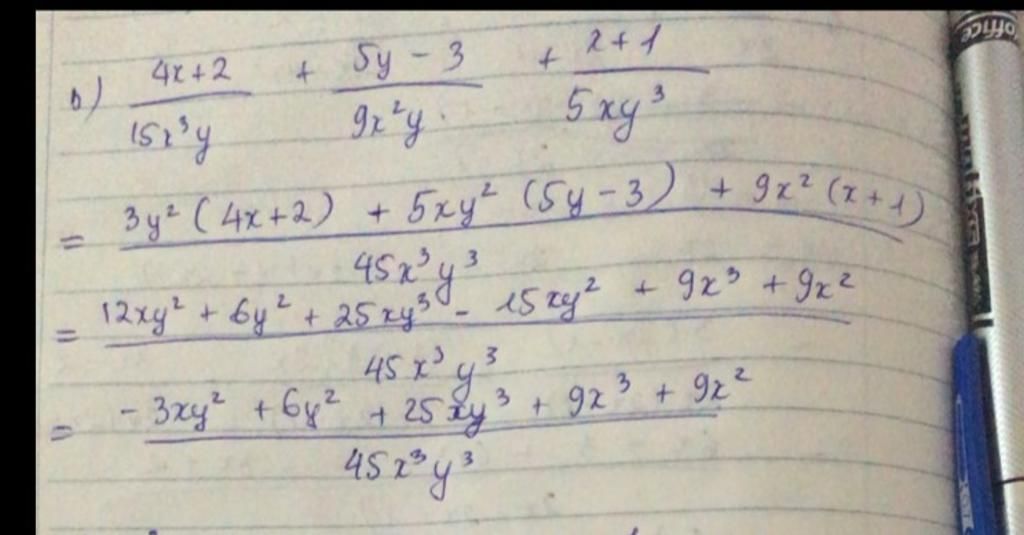 b) \frac{4x+2}{15x^3y} + \frac{5y-3}{9x^2y} + \frac{x+1}{5xy^3}
= \frac{3y^2(4x+2) + 5xy^2(5y-3) + 9x^2(x+1)}{45x^3y^3}
= \frac{12xy^2 + 6y^2 + 25xy^3 - 15xy^2 + 9x^3 + 9x^2}{45x^3y^3}
= \frac{-3xy^2 + 6y^2 + 25xy^3 + 9x^3 + 9x^2}{45x^3y^3}
office